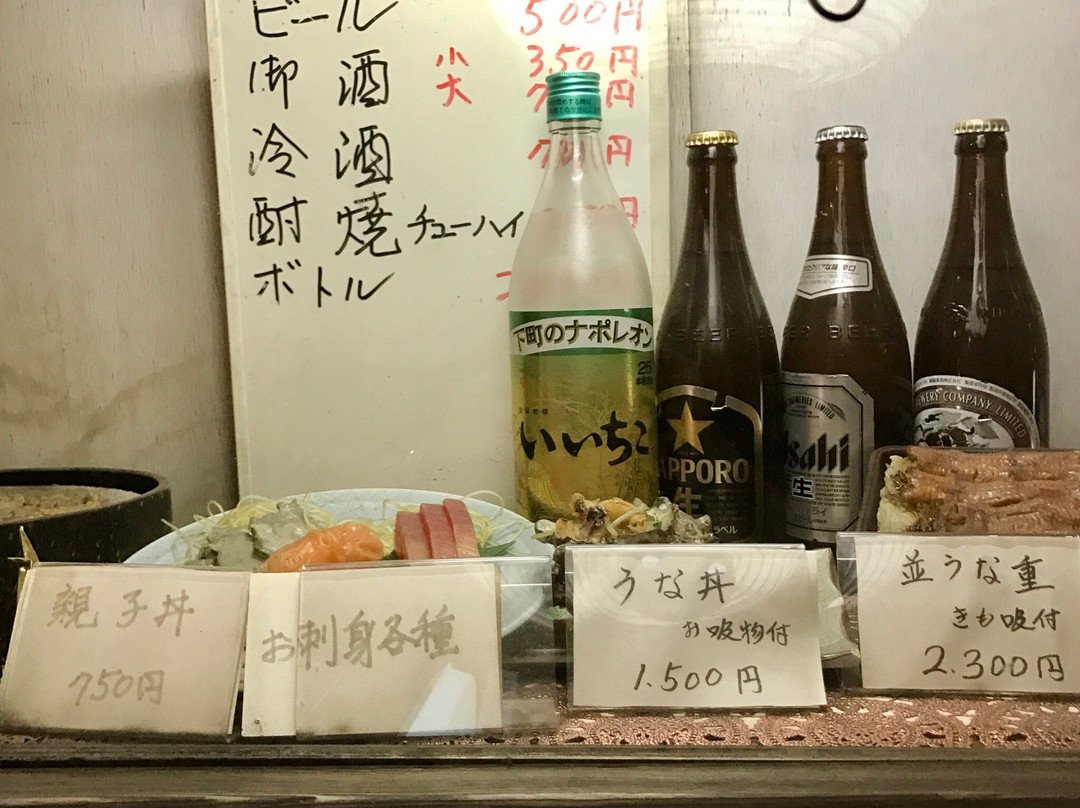 ビール 500円
御酒 小 350円
大 7 円
冷酒 7 円
酎焼 チューハイ 円
ボトル
下町のナポレオン
25
いいちこ
BEER
SAPPORO
生
ラベル
辛口
BEER
BREWERIES LIMITED
Asahi
生
BREWERY COMPANY, LIMITED
親子丼
750円
お刺身各種
うな丼
お吸物付
1.500円
並うな重
きも吸付
2.300円